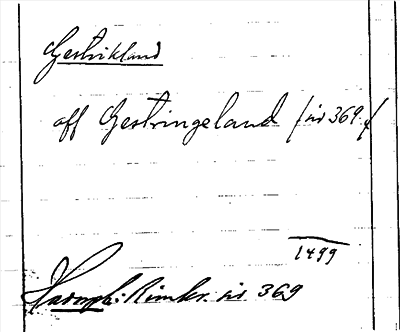 Gestrikland
off Gestringeland / sid 369 /
1499
Hadorph: Rimkr. sid 369